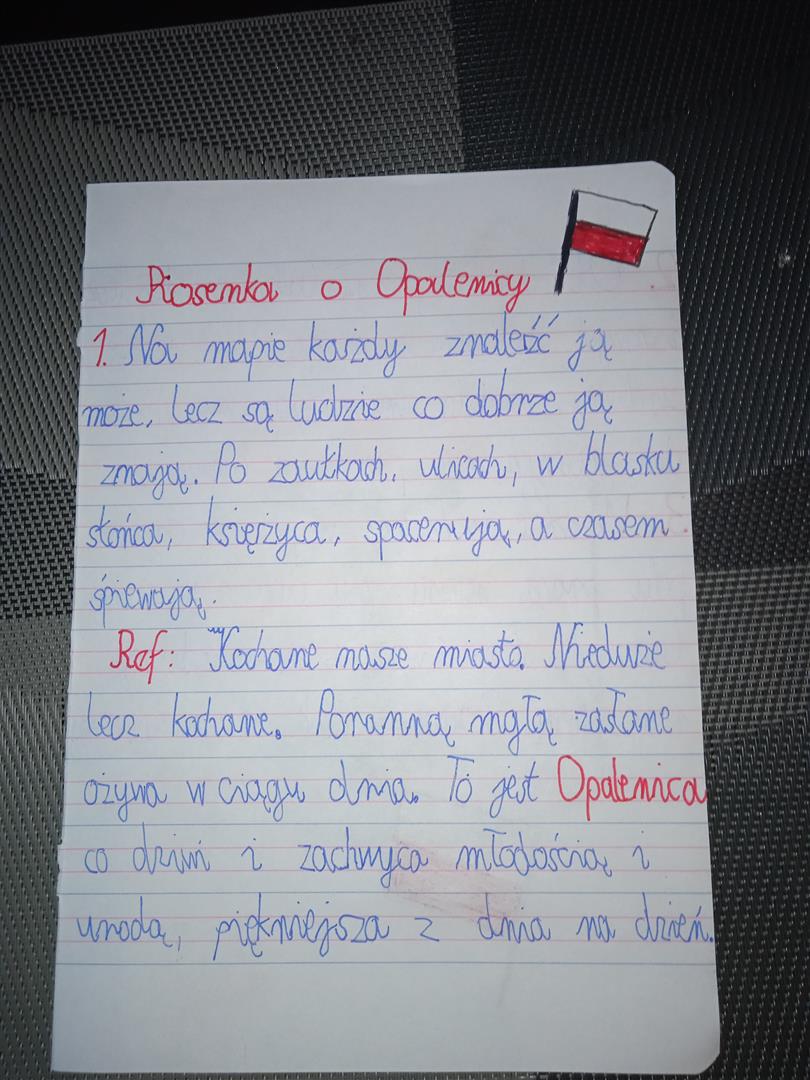 Piosenka o Opalenicy
1. Na mapie każdy znaleźć ją
może, lecz są ludzie co dobrze ją
znają. Po zaułkach, ulicach, w blasku
słońca, księżyca, spacerują, a czasem
śpiewają.
Ref: Kochane nasze miasto. Nieduże
lecz kochane. Poranną mgłą zasłane
ożywa w ciągu dnia. To jest Opalenica
co dziwi i zachwyca młodością i
urodą, piękniejsza z dnia na dzień.